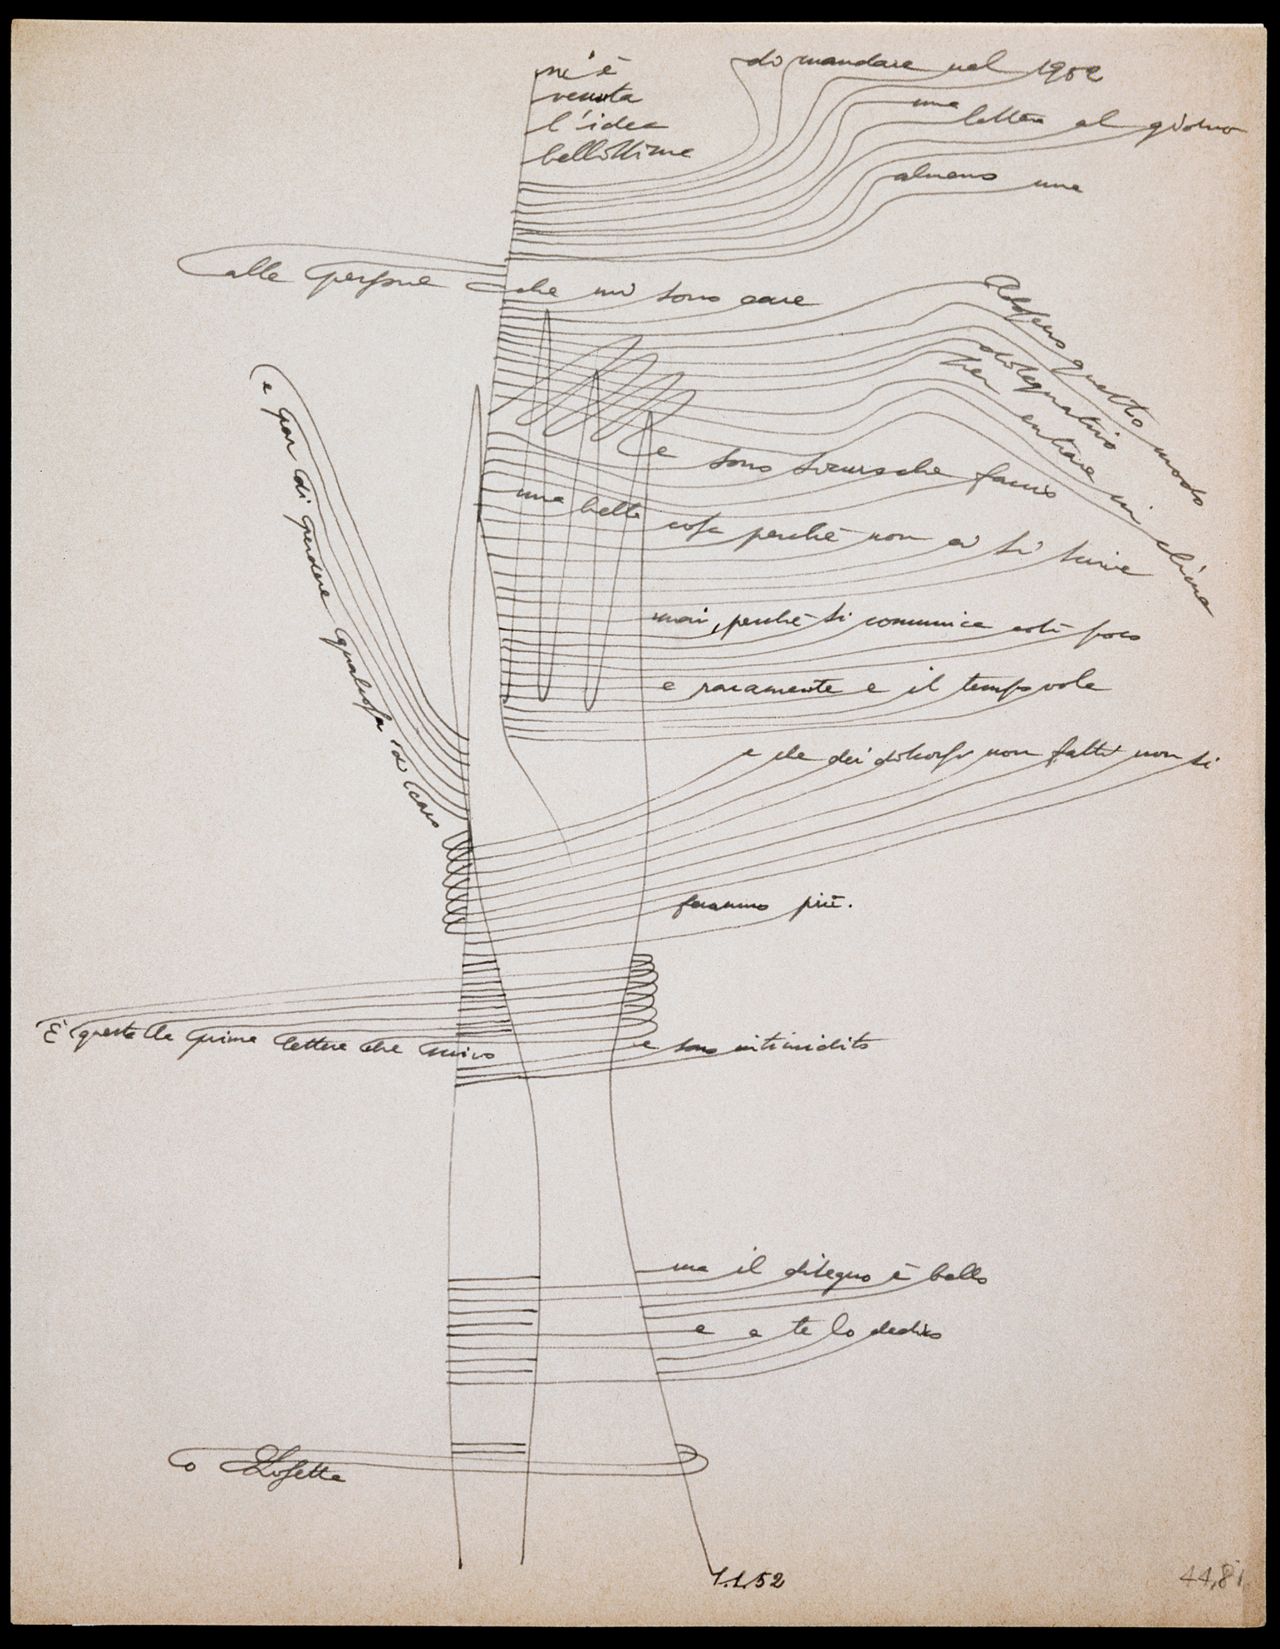 m'è
venuta
l'idea
bellissima
di mandare nel 1952
una
lettera al giorno
almeno una
alle persone che mi sono care
Adopero questo modo
disegnativo
per entrare in clima
e sono sicuro che faccio
una bella cosa perché non ci si scrive
mai, perché si comunica così poco
e raramente e il tempo vola
e che dei discorsi non fatti non si
faranno più.
e par di perdere qualcosa di caro
È questa la prima lettera che scrivo
e sono intimidito
ma il disegno è bello
e a te lo dedico
o Lisetta
1.1.52
44,81